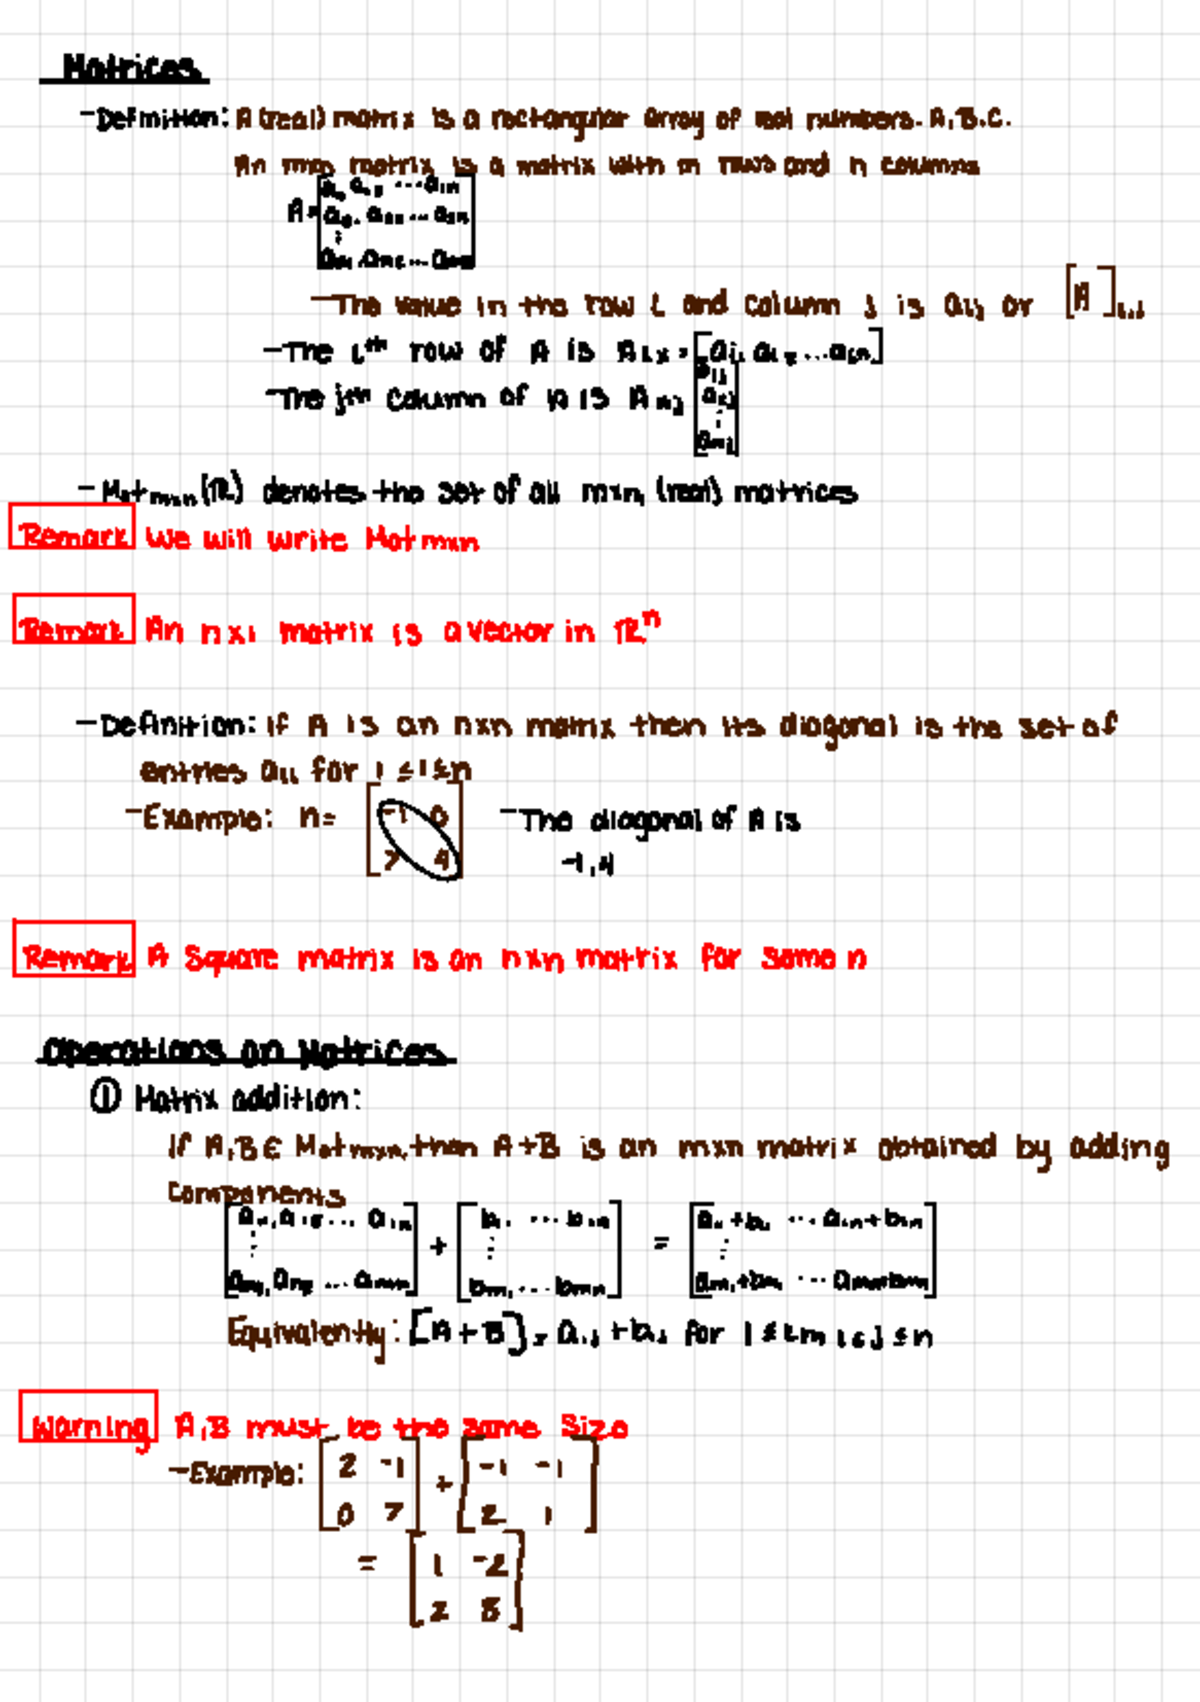 Matrices
-Definition: A (real) matrix is a rectangular array of real numbers. A,B,C.
An mxn matrix is a matrix with m rows and n columns
A= [a₁₁ a₁₂ ... a₁n
a₂₁ a₂₂ ... a₂n
⋮
am₁ am₂ ... amn]
-The value in the row i and column j is aij or [A]i,j
-The ith row of A is Aix = [ai₁ ai₂ ... ain]
-The jth column of A is Axj [a₁j
a₂j
⋮
amj]
- Matmxn(ℝ) denotes the set of all mxn (real) matrices
Remark We will write Matmxn
Remark An nx1 matrix is a vector in ℝⁿ
-Definition: If A is an nxn matrix then its diagonal is the set of
entries aii for 1≤i≤n
-Example: n= [-1 0 -The diagonal of A is
7 4] -1,4
Remark A Square matrix is an nxn matrix for some n
Operations on Matrices
① Matrix addition:
If A,B∈ Matmxn, then A+B is an mxn matrix obtained by adding
components
[a₁₁, a₁₂ ... a₁n + [b₁₁ ... b₁n = [a₁₁+b₁₁ ... a₁n+b₁n
⋮ ⋮ ⋮
am₁, am₂ ... amn] bm₁ ... bmn] am₁+bm₁ ... amn+bmn]
Equivalently: [A+B] = aij + bij for 1≤i≤m 1≤j≤n
Warning A,B must be the same size
-Example: [2 -1 + [-1 -1
0 7] 2 1]
= [1 -2
2 8]